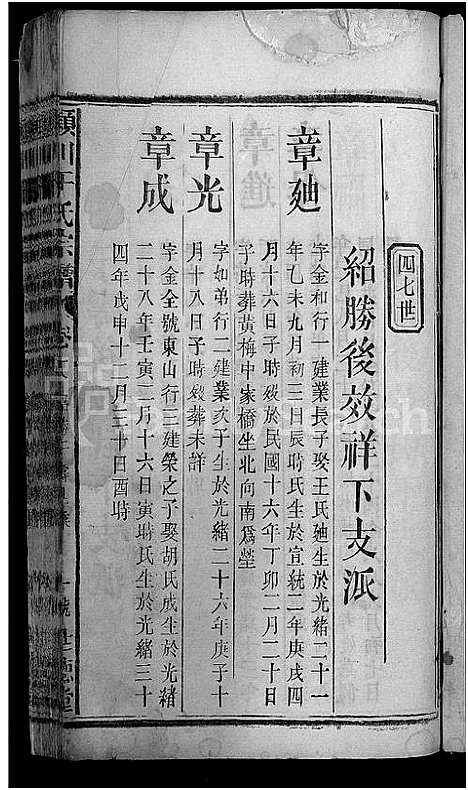 四七世
紹勝後效祥下支派
章廸
字金和行一建業長子娶王氏廸生於光緒二十一
年乙未九月初三日辰時氏生於宣統二年庚戌四
月十六日子時歿於民國十六年丁卯二月二十日
子時葬黃梅中家橋坐北向南爲塋
章光
字如弟行二建業次子生於光緒二十六年庚子十
月十八日子時歿葬未詳
章成
字金全號東山行三建榮之子娶胡氏成生於光緒
二十八年壬寅二月十六日寅時氏生於光緒三十
四年戊申十二月三十日酉時